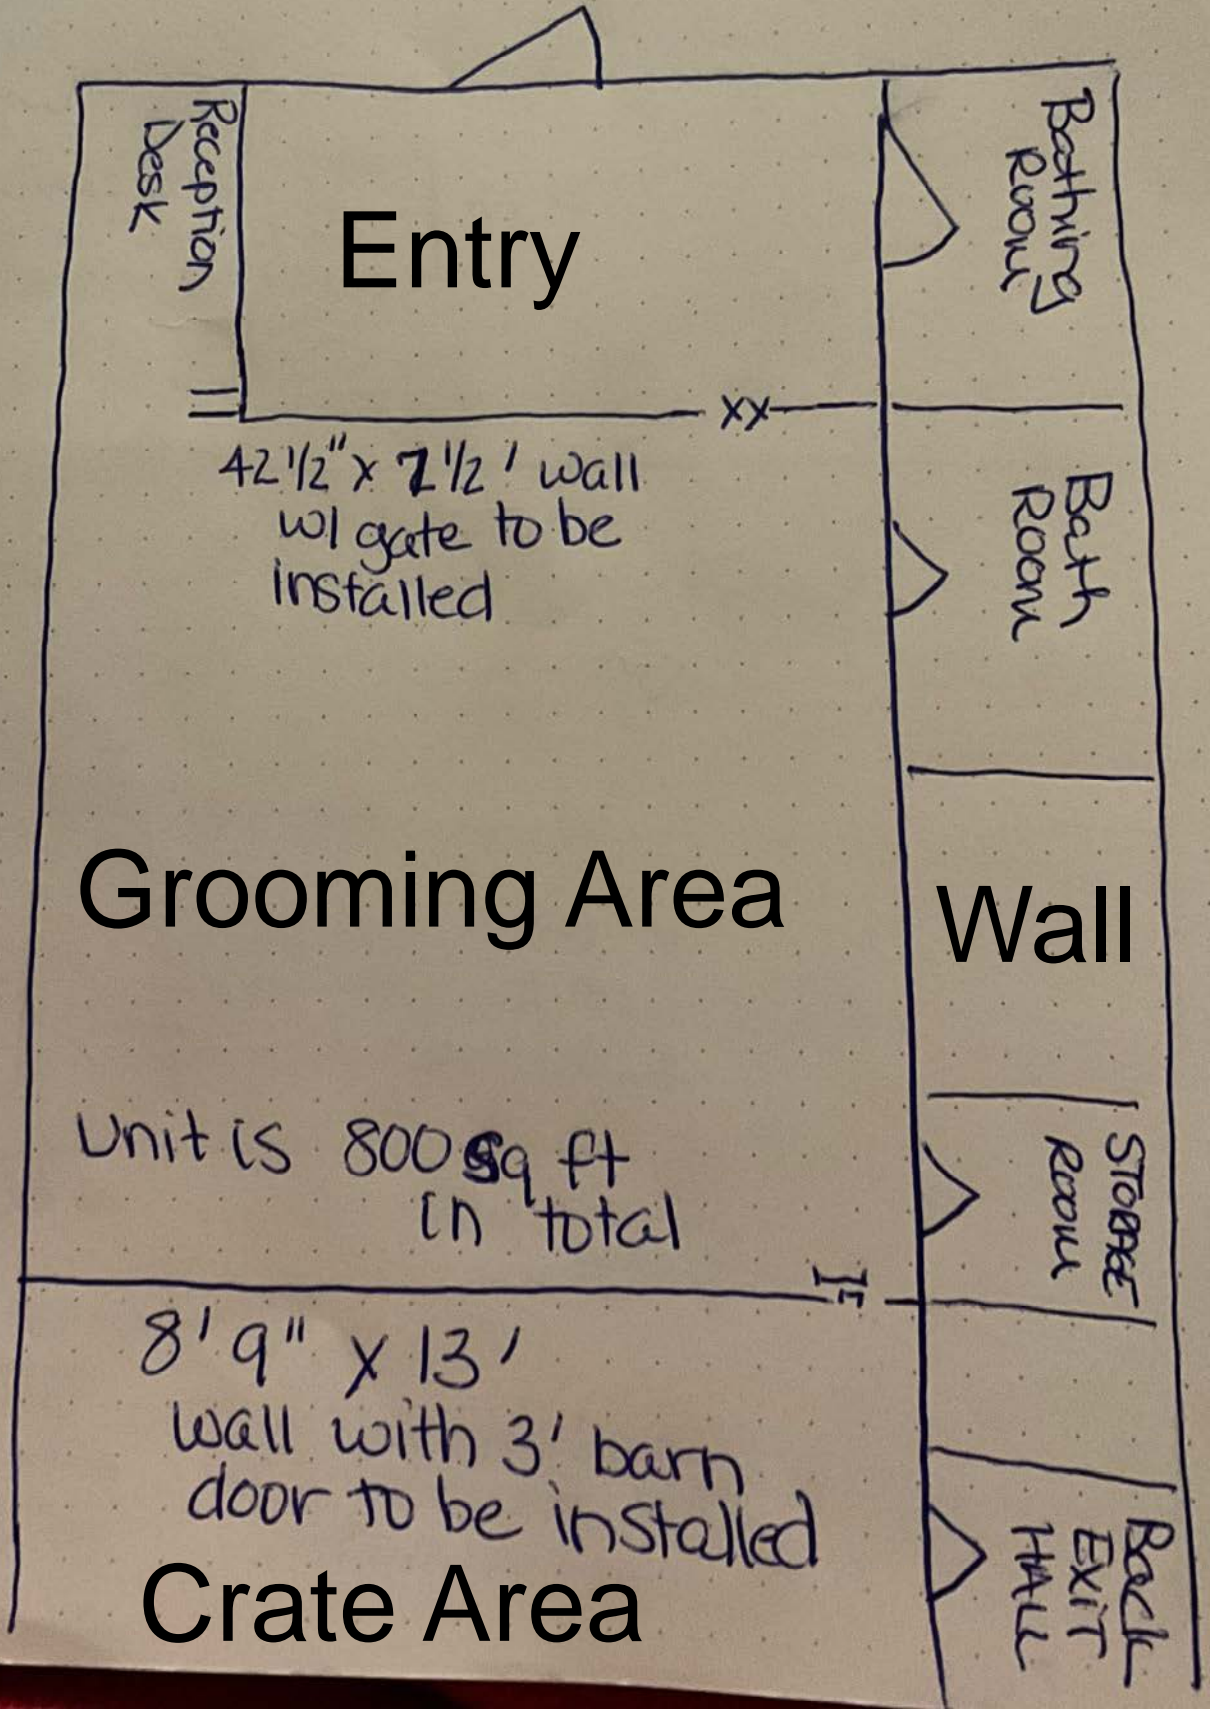 Reception
Desk
Entry
Bathing
Room
XX
42 1/2" x 7 1/2' wall
w/ gate to be
installed
Bath
Room
Grooming Area
Wall
Unit is 800 sq ft
in total
STORAGE
Room
8' 9" x 13'
wall with 3' barn
door to be installed
Crate Area
Back
EXIT
HALL